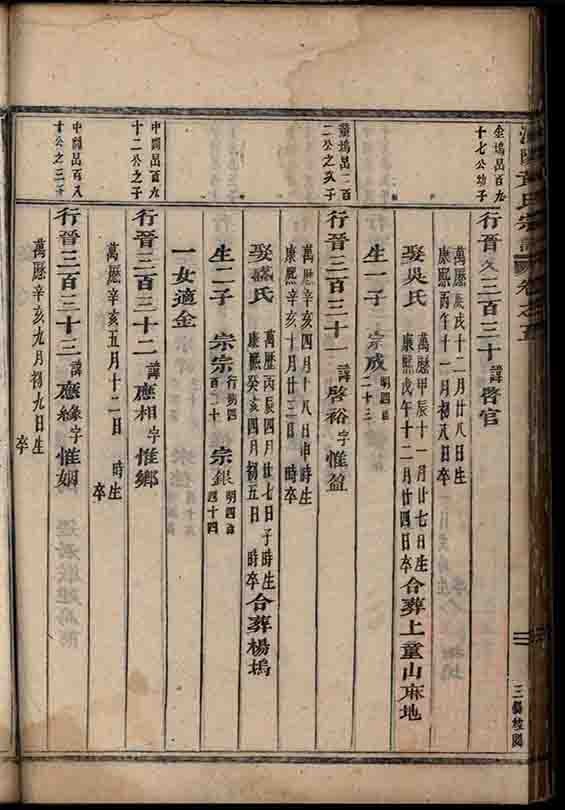 黃氏宗譜 卷之五
三鄉校閱
金塢邑百九
十七公幼子
行晉三百三十諱啓官
萬歷庚戌十二月廿八日生
康熙丙午十一月初八日卒
娶吳氏 萬歷甲辰十一月廿七日生 合葬上童山麻地
康熙戊午十二月廿四日卒
生一子 宗成 明四百
二十三
塢邑二百
二公之次子
行晉三百三十一諱啓裕字惟盈
萬歷辛亥四月十八日申時生
康熙辛亥十月廿三日 時卒
娶氏 萬歷丙辰四月廿七日子時生 合葬楊塢
康熙癸亥四月初五日 時卒
生二子 宗宗 行明四
百二十 宗銀 明四百
四十四
一女適金
中間邑百九
十二公之子
行晉三百三十二諱應相字惟鄉
萬歷辛亥五月十二日 時生
卒
中間邑百八
十公之三子
行晉三百三十三諱應緣字惟姻
萬歷辛亥九月初九日生
卒